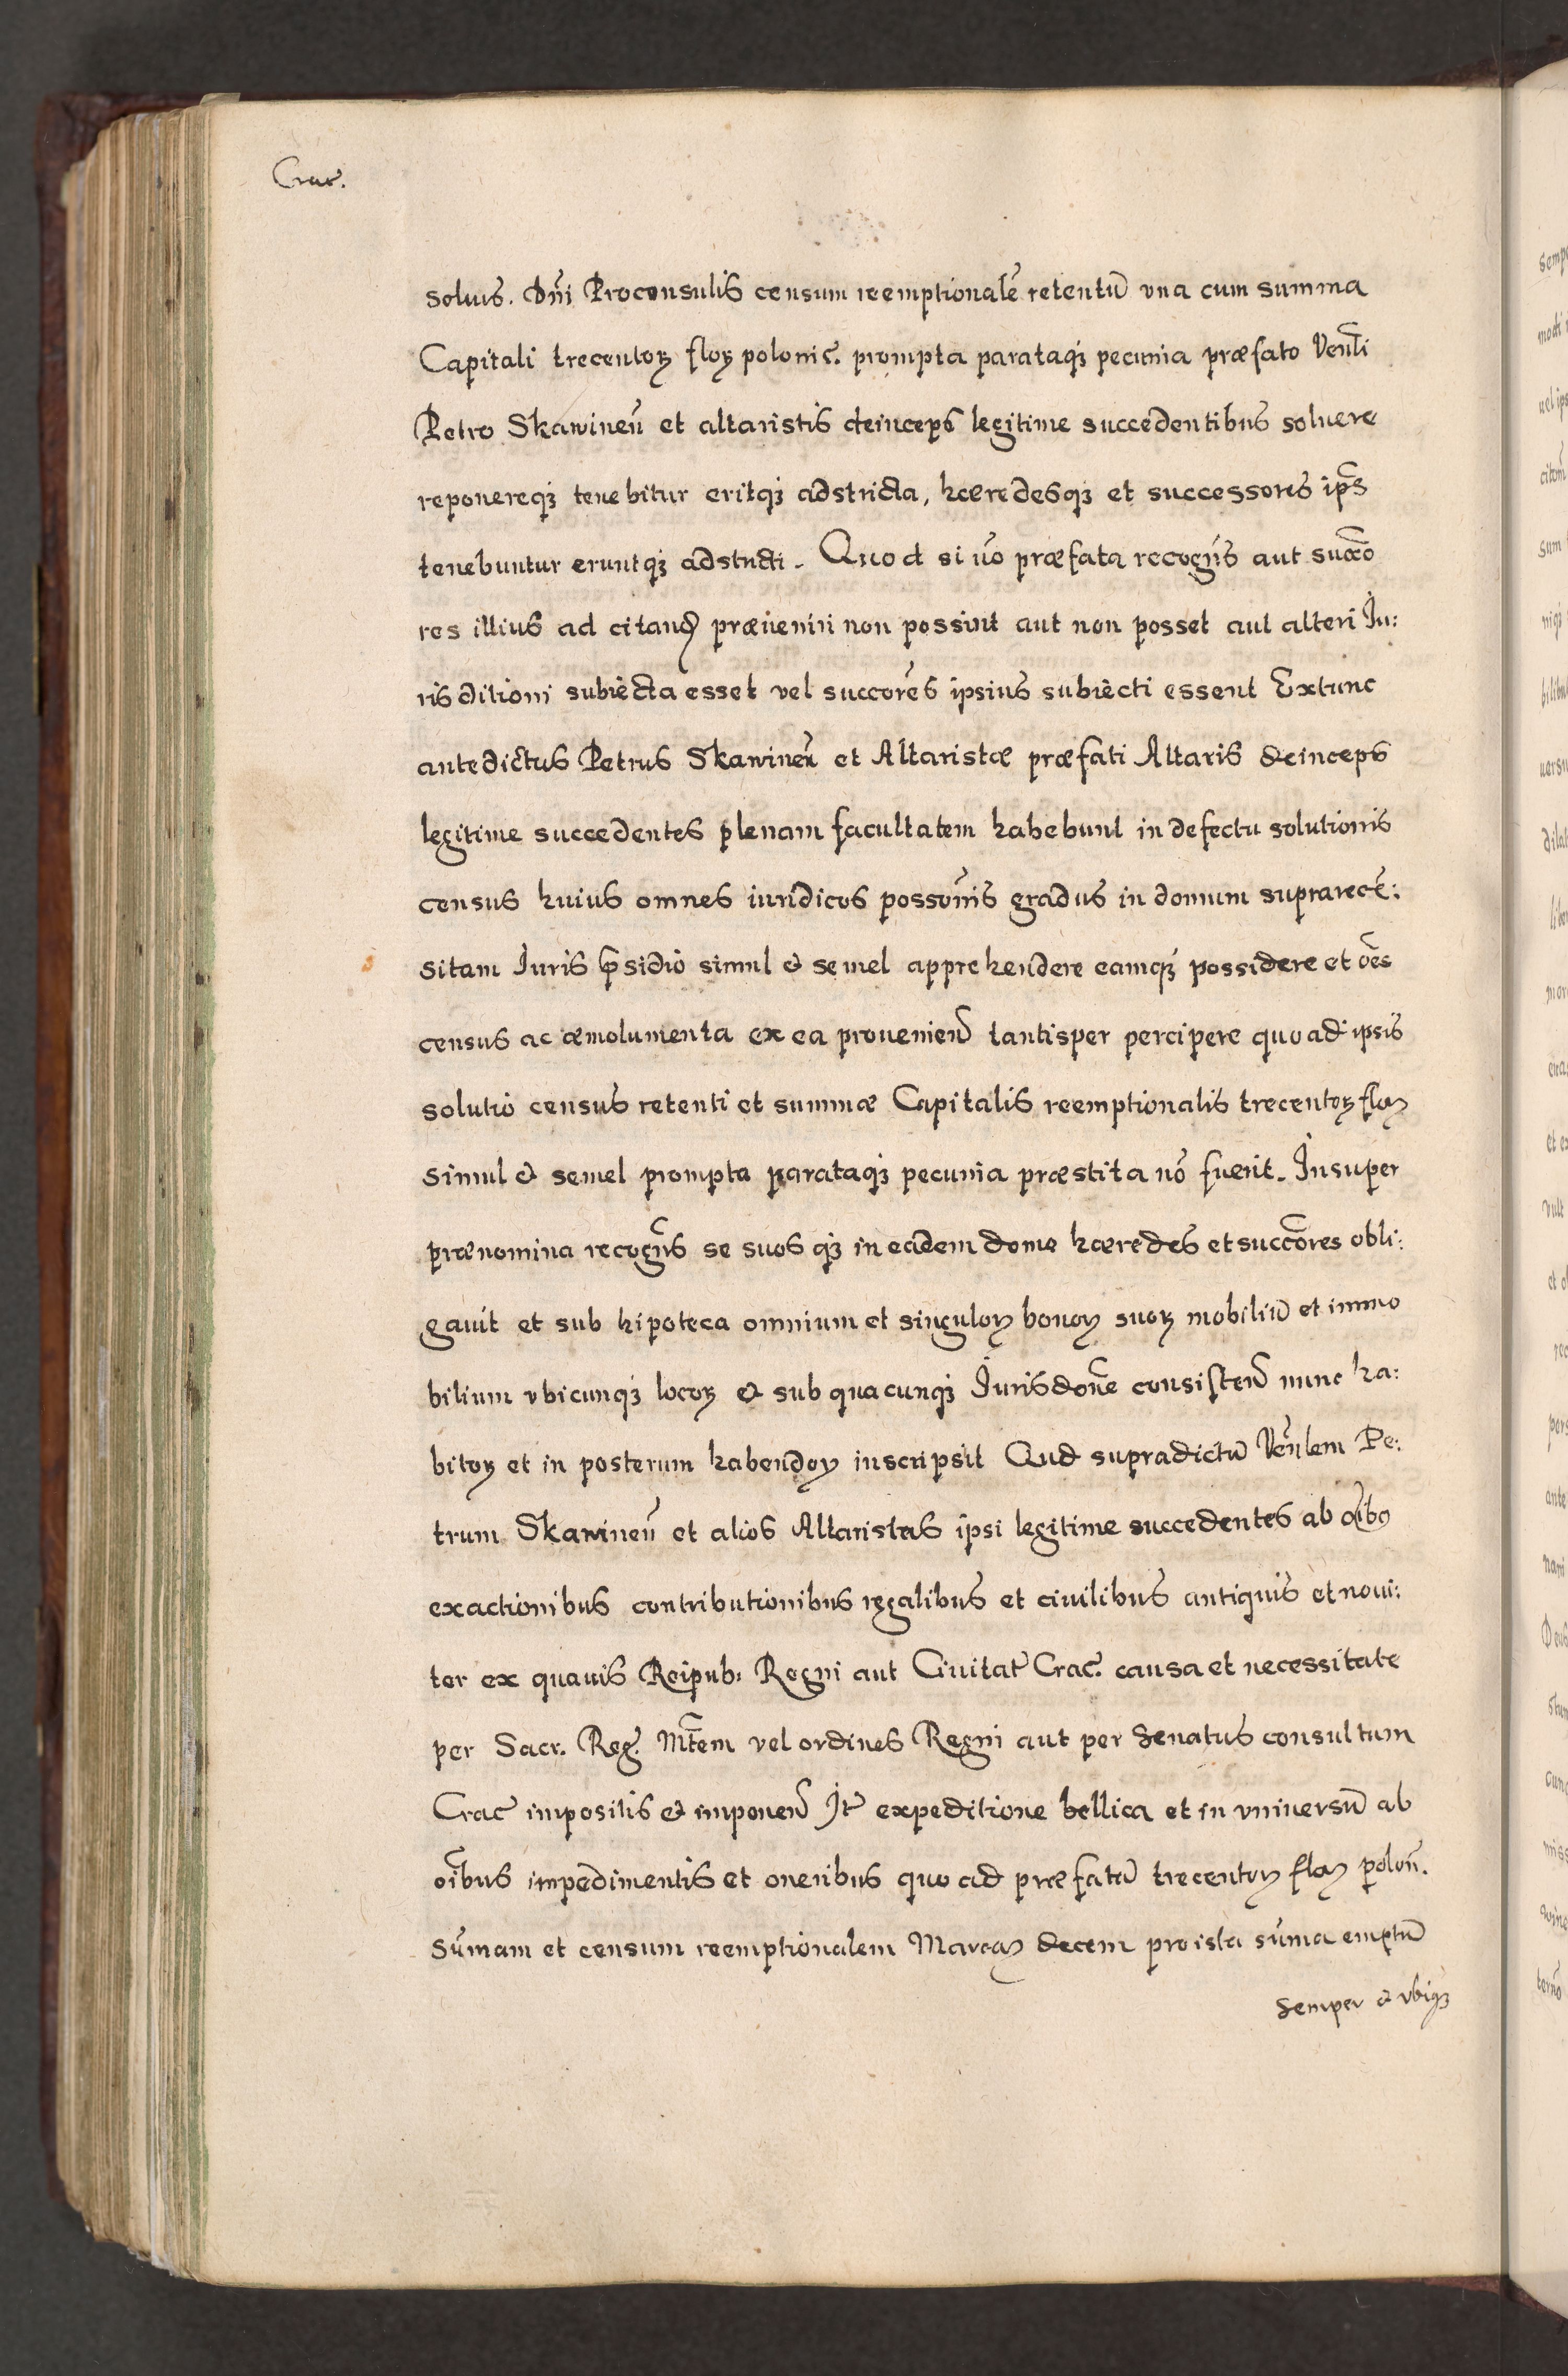 Crac.
soluis. Dñi Proconsulis censum reemptionalẽ retentũ vna cum summa
Capitali trecentoꝝ floꝝ polonic. prompta parataqꝫ pecunia præfato Venli
Petro Skawineñ et altaristis deinceps legitime succedentibus soluere
reponereqꝫ tenebitur eritqꝫ adstricta, hæredesqꝫ et successores ips̃
tenebuntur eruntqꝫ adstricti. Quod si ṽo præfata recogñs aut succo
res illius ad citanđ præueniri non possint aut non posset aut alteri Ju:
risditioni subiecta esset vel succores ipsius subiecti essent Extunc
antedictus Petrus Skawineñ et Altaristæ præfati Altaris deinceps
legitime succedentes plenam facultatem habebunt in defectu solutionis
census huius omnes iuridicos possoñis gradus in domum supra recẽ:
sitam Juris p̃sidio simul & semel apprehendere eamqꝫ possidere et oẽs
census ac æmolumenta ex ea prouenieñ tantisper percipere quo ad ipsis
solutio census retenti et summæ Capitalis reemptionalis trecentoꝝ floꝝ
simul & semel prompta parataqꝫ pecunia præstita nõ fuerit. Insuper
prænomina recogñs se suosqꝫ in eadem domo hæredes et succores obli:
gauit et sub hipoteca omnium et singuloꝝ bonoꝝ suoꝝ mobiliũ et immo
bilium vbicunqꝫ locoꝝ & sub quacunqꝫ Jurisdoñe consisteñ nunc ha:
bitoꝝ et in posterum habendoꝝ inscripsit Qud supradictũ Veñlem Pe:
trum Skawineñ et alios Altaristas ipsi legitime succedentes ab oĩbꝫ
exactionibus contributionibus regalibus et ciuilibus antiquis et noui:
ter ex quauis Reipub: Regni aut Ciuitat Crac. causa et necessitate
per Sacr. Reg. Mt̃em vel ordines Regni aut per Senatus consultum
Crac impositis & imponeñ It expeditione bellica et in vniuersũ ab
oĩbus impedimentis et oneribus quo ad præfatã trecentoꝝ floꝝ poloñ.
sũmam et censum reemptionalem Marcaꝝ decem pro ista sũma emptũ
semper & vbiqꝫ